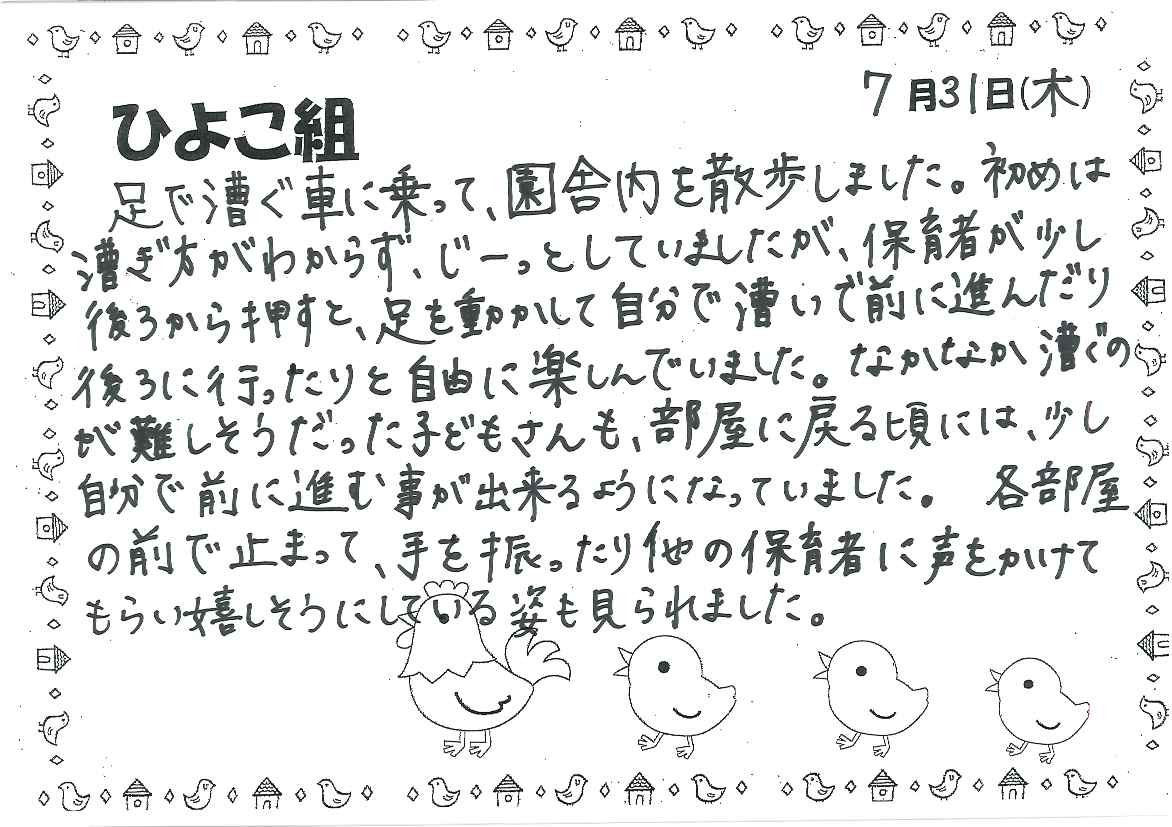 7月31日(木)
ひよこ組
足で漕ぐ車に乗って、園舎内を散歩しました。初めは
漕ぎ方がわからず、じーっとしていましたが、保育者が少し
後ろから押すと、足を動かして自分で漕いで前に進んだり
後ろに行ったりと自由に楽しんでいました。なかなか漕ぐの
が難しそうだった子どもさんも、部屋に戻る頃には、少し
自分で前に進む事が出来るようになっていました。 各部屋
の前で止まって、手を振ったり他の保育者に声をかけて
もらい嬉しそうにしている姿も見られました。